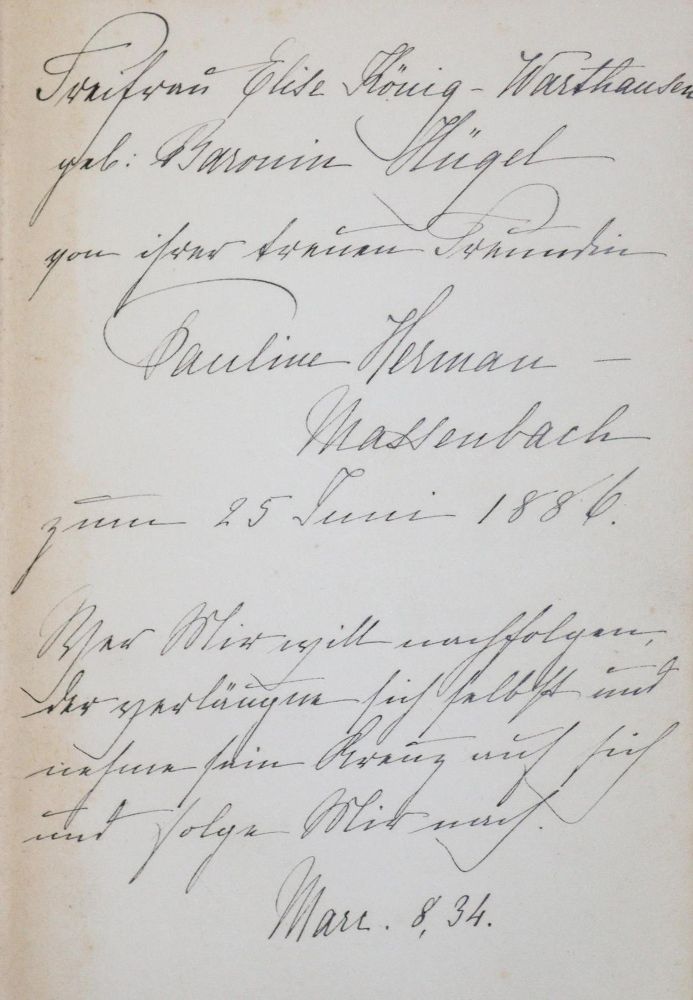 Freifrau Elise König-Warthausen
geb: Baronin Hügel
von ihrer treuen Freundin
Pauline Herman –
Massenbach
zum 25 Juni 1886.
Wer Mir will nachfolgen,
der verläugne sich selbst und
nehme sein Kreuz auf sich
und folge Mir nach.
Marc. 8, 34.